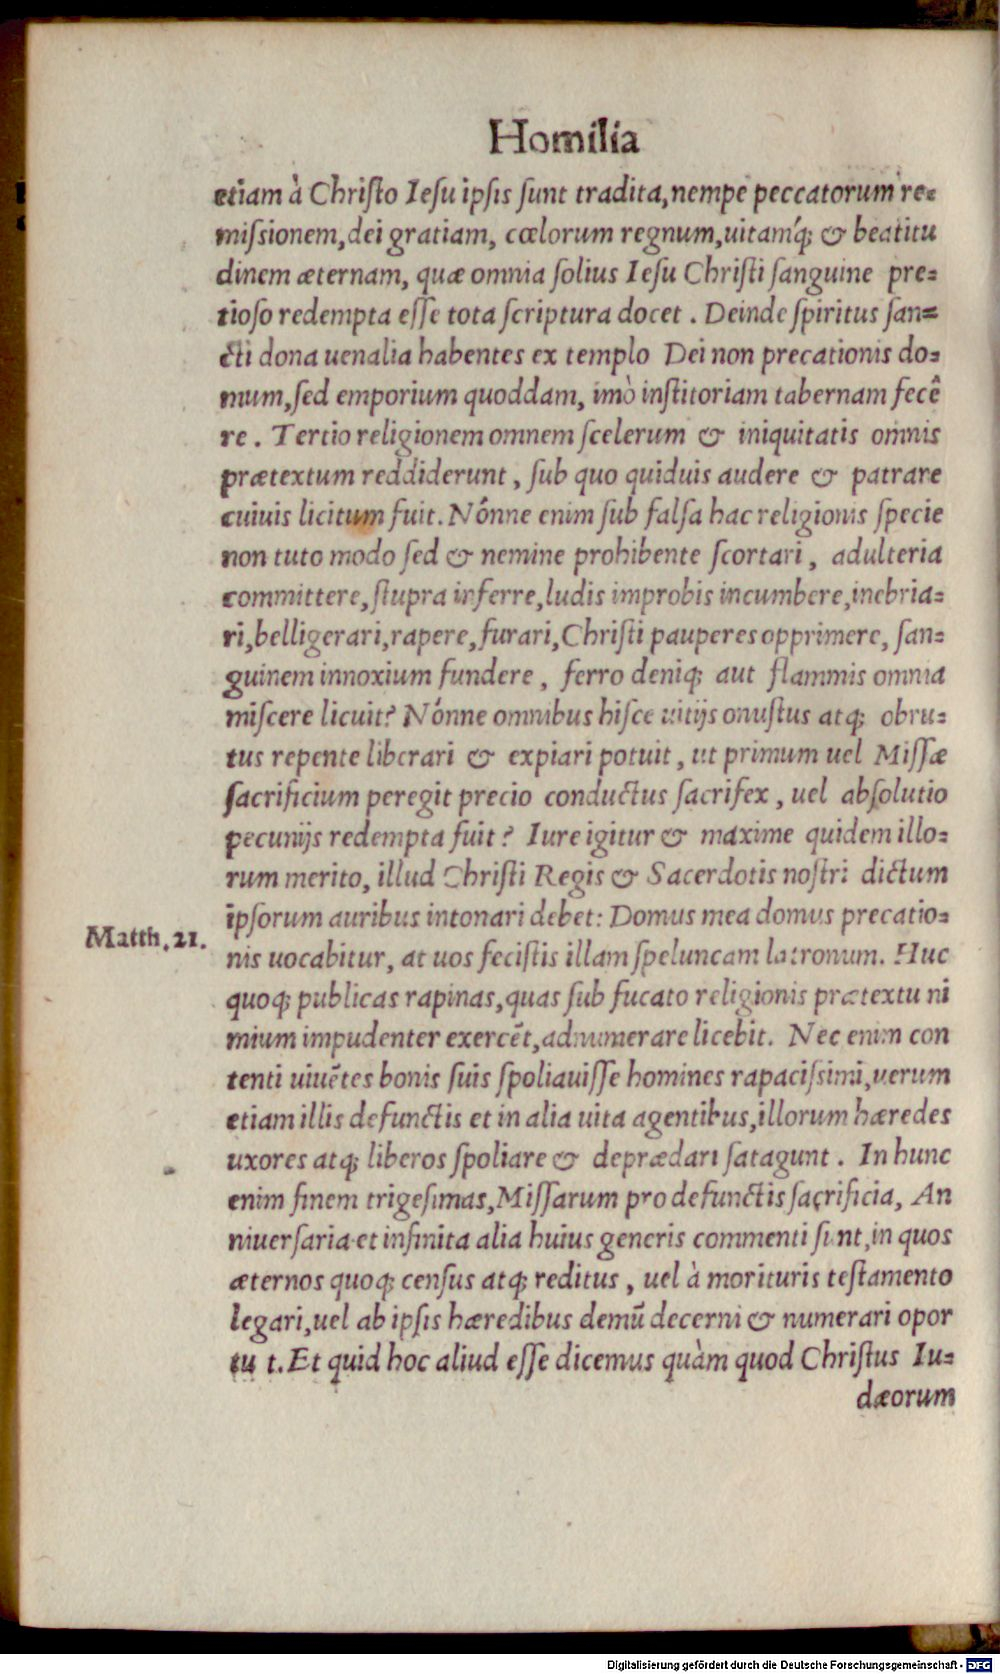 Homilia
etiam à Chriſto Ieſu ipſis ſunt tradita, nempe peccatorum re=
miſsionem, dei gratiam, cœlorum regnum, uitamq́; & beatitu
dinem æternam, quæ omnia ſolius Ieſu Chriſti ſanguine pre=
tioſo redempta eſſe tota ſcriptura docet. Deinde ſpiritus ſan=
cti dona uenalia habentes ex templo Dei non precationis do=
mum, ſed emporium quoddam, imò inſtitoriam tabernam fecê
re. Tertio religionem omnem ſcelerum & iniquitatis omnis
prætextum reddiderunt, ſub quo quiduis audere & patrare
cuiuis licitum fuit. Nónne enim ſub falſa hac religionis ſpecie
non tuto modo ſed & nemine prohibente ſcortari, adulteria
committere, ſtupra inferre, ludis improbis incumbere, inebria=
ri, belligerari, rapere, furari, Chriſti pauperes opprimere, ſan=
guinem innoxium fundere, ferro deniq; aut flammis omnia
miſcere licuit? Nónne omnibus hiſce uitijs onuſtus atq; obru=
tus repente liberari & expiari potuit, ut primum uel Miſſæ
ſacrificium peregit precio conductus ſacrifex, uel abſolutio
pecunijs redempta fuit? Iure igitur & maxime quidem illo=
rum merito, illud Chriſti Regis & Sacerdotis noſtri dictum
ipſorum auribus intonari debet: Domus mea domus precatio=
Matth. 21.
nis uocabitur, at uos feciſtis illam ſpeluncam latronum. Huc
quoq; publicas rapinas, quas ſub fucato religionis prætextu ni
mium impudenter exercẽt, adnumerare licebit. Nec enim con
tenti uiuẽtes bonis ſuis ſpoliauiſſe homines rapaciſsimi, uerum
etiam illis defunctis et in alia uita agentibus, illorum hæredes
uxores atq; liberos ſpoliare & deprædari ſatagunt. In hunc
enim finem trigeſimas, Miſſarum pro defunctis ſacrificia, An
niuerſaria et infinita alia huius generis commenti ſunt, in quos
æternos quoq; cenſus atq; reditus, uel à morituris teſtamento
legari, uel ab ipſis hæredibus demũ decerni & numerari opor
tu t. Et quid hoc aliud eſſe dicemus quàm quod Chriſtus Iu=
dæorum
Digitalisierung gefördert durch die Deutsche Forschungsgemeinschaft - DFG